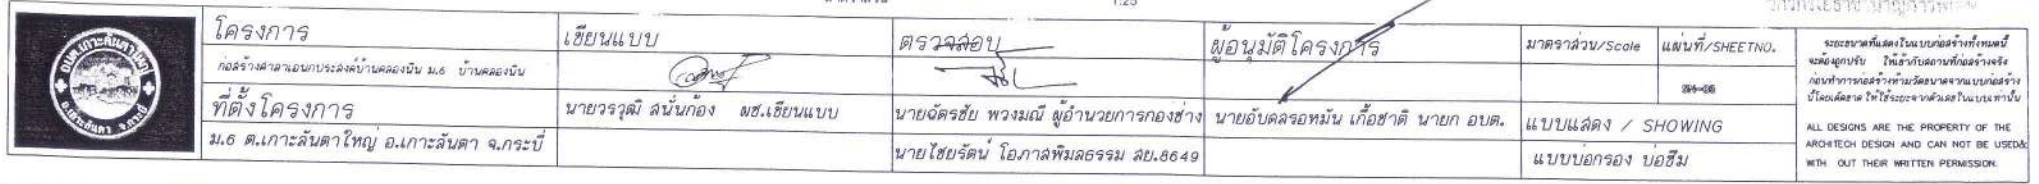 1:25
อบต.เกาะลันตาใหญ่
อ.เกาะลันตา จ.กระบี่
โครงการ
ก่อสร้างศาลาเอนกประสงค์บ้านคลองนิน ม.6 บ้านคลองนิน
ที่ตั้งโครงการ
ม.6 ต.เกาะลันตาใหญ่ อ.เกาะลันตา จ.กระบี่
เขียนแบบ
นายวรวุฒิ สนั่นก้อง ผช.เขียนแบบ
ตรวจสอบ
นายฉัตรชัย พวงมณี ผู้อำนวยการกองช่าง
นายไชยรัตน์ โอภาสพิมลธรรม สย.8649
ผู้อนุมัติโครงการ
นายอับดลรอหมัน เกื้อชาติ นายก อบต.
มาตราส่วน/Scale
แผ่นที่/SHEETNO.
แบบแสดง / SHOWING
แบบบ่อกรอง บ่อซึม
ระยะขนาดที่แสดงในแบบก่อสร้างทั้งหมดนี้
จะต้องถูกปรับ ให้เข้ากับสถานที่ก่อสร้างจริง
ก่อนทำการก่อสร้างห้ามวัดขนาดจากแบบก่อสร้าง
นี้โดยเด็ดขาด ให้ใช้ระยะจากตัวเลขในแบบเท่านั้น
ALL DESIGNS ARE THE PROPERTY OF THE
ARCHITECH DESIGN AND CAN NOT BE USED&
WITH OUT THEIR WRITTEN PERMISSION.